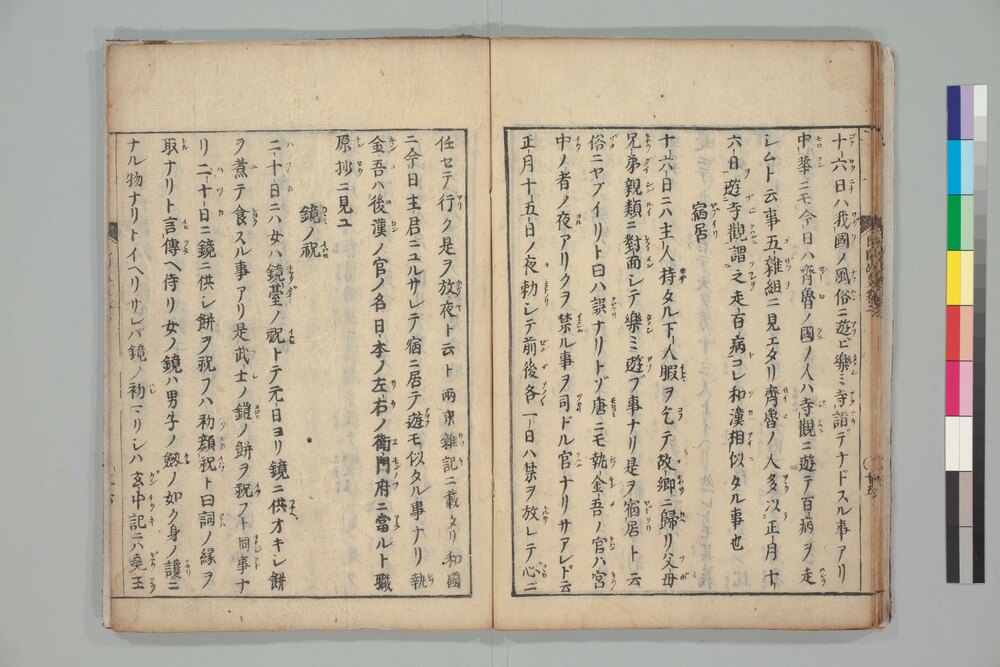 十六日ハ我國ノ風俗ニ遊ビ樂ミ寺詣デナドスル事アリ
中華ニモ今日ハ齊魯ノ國ノ人ハ寺觀ニ遊テ百病ヲ走
シムト云事五雜組ニ見エタリ齊魯ノ人多以正月十
六日遊寺觀謂之走百病コレ和漢相似タル事也
宿居
十六日ニハ主人持タル下人暇ヲ乞テ故鄉ニ歸リ父母
兄弟親類ニ對面シテ樂ミ遊ブ事ナリ是ヲ宿居ト云
俗ニヤブイリト曰ハ誤ナリトゾ唐ニモ執金吾ノ官ハ宮
中ノ者ノ夜アリクヲ禁ル事ヲ司ドル官ナリサアレド云
正月十五日ノ夜勅シテ前後各一日ハ禁ヲ放レテ心ニ
任セテ行ク是ヲ放夜ト云ト兩京雜記ニ載タリ和國
ニ今日主君ニユルサレテ宿ニ居テ遊モ似タル事ナリ執
金吾ハ後漢ノ官ノ名日本ノ左右ノ衛門府ニ當ルト職
原抄ニ見ユ
鏡ノ祝
二十日ニハ女ハ鏡臺ノ祝トテ元日ヨリ鏡ニ供オキシ餅
ヲ煮テ食スル事アリ是武士ノ鎧ノ餅ヲ祝フト同事ナ
リ二十日ニ鏡ニ供シ餅ヲ祝フハ初顏祝ト曰詞ノ縁ヲ
取ナリト言傳ヘ侍リ女ノ鏡ハ男子ノ劔ノ如ク身ノ護ニ
ナル物ナリトイヘリサレバ鏡ノ初マリシハ玄中記ニハ堯王